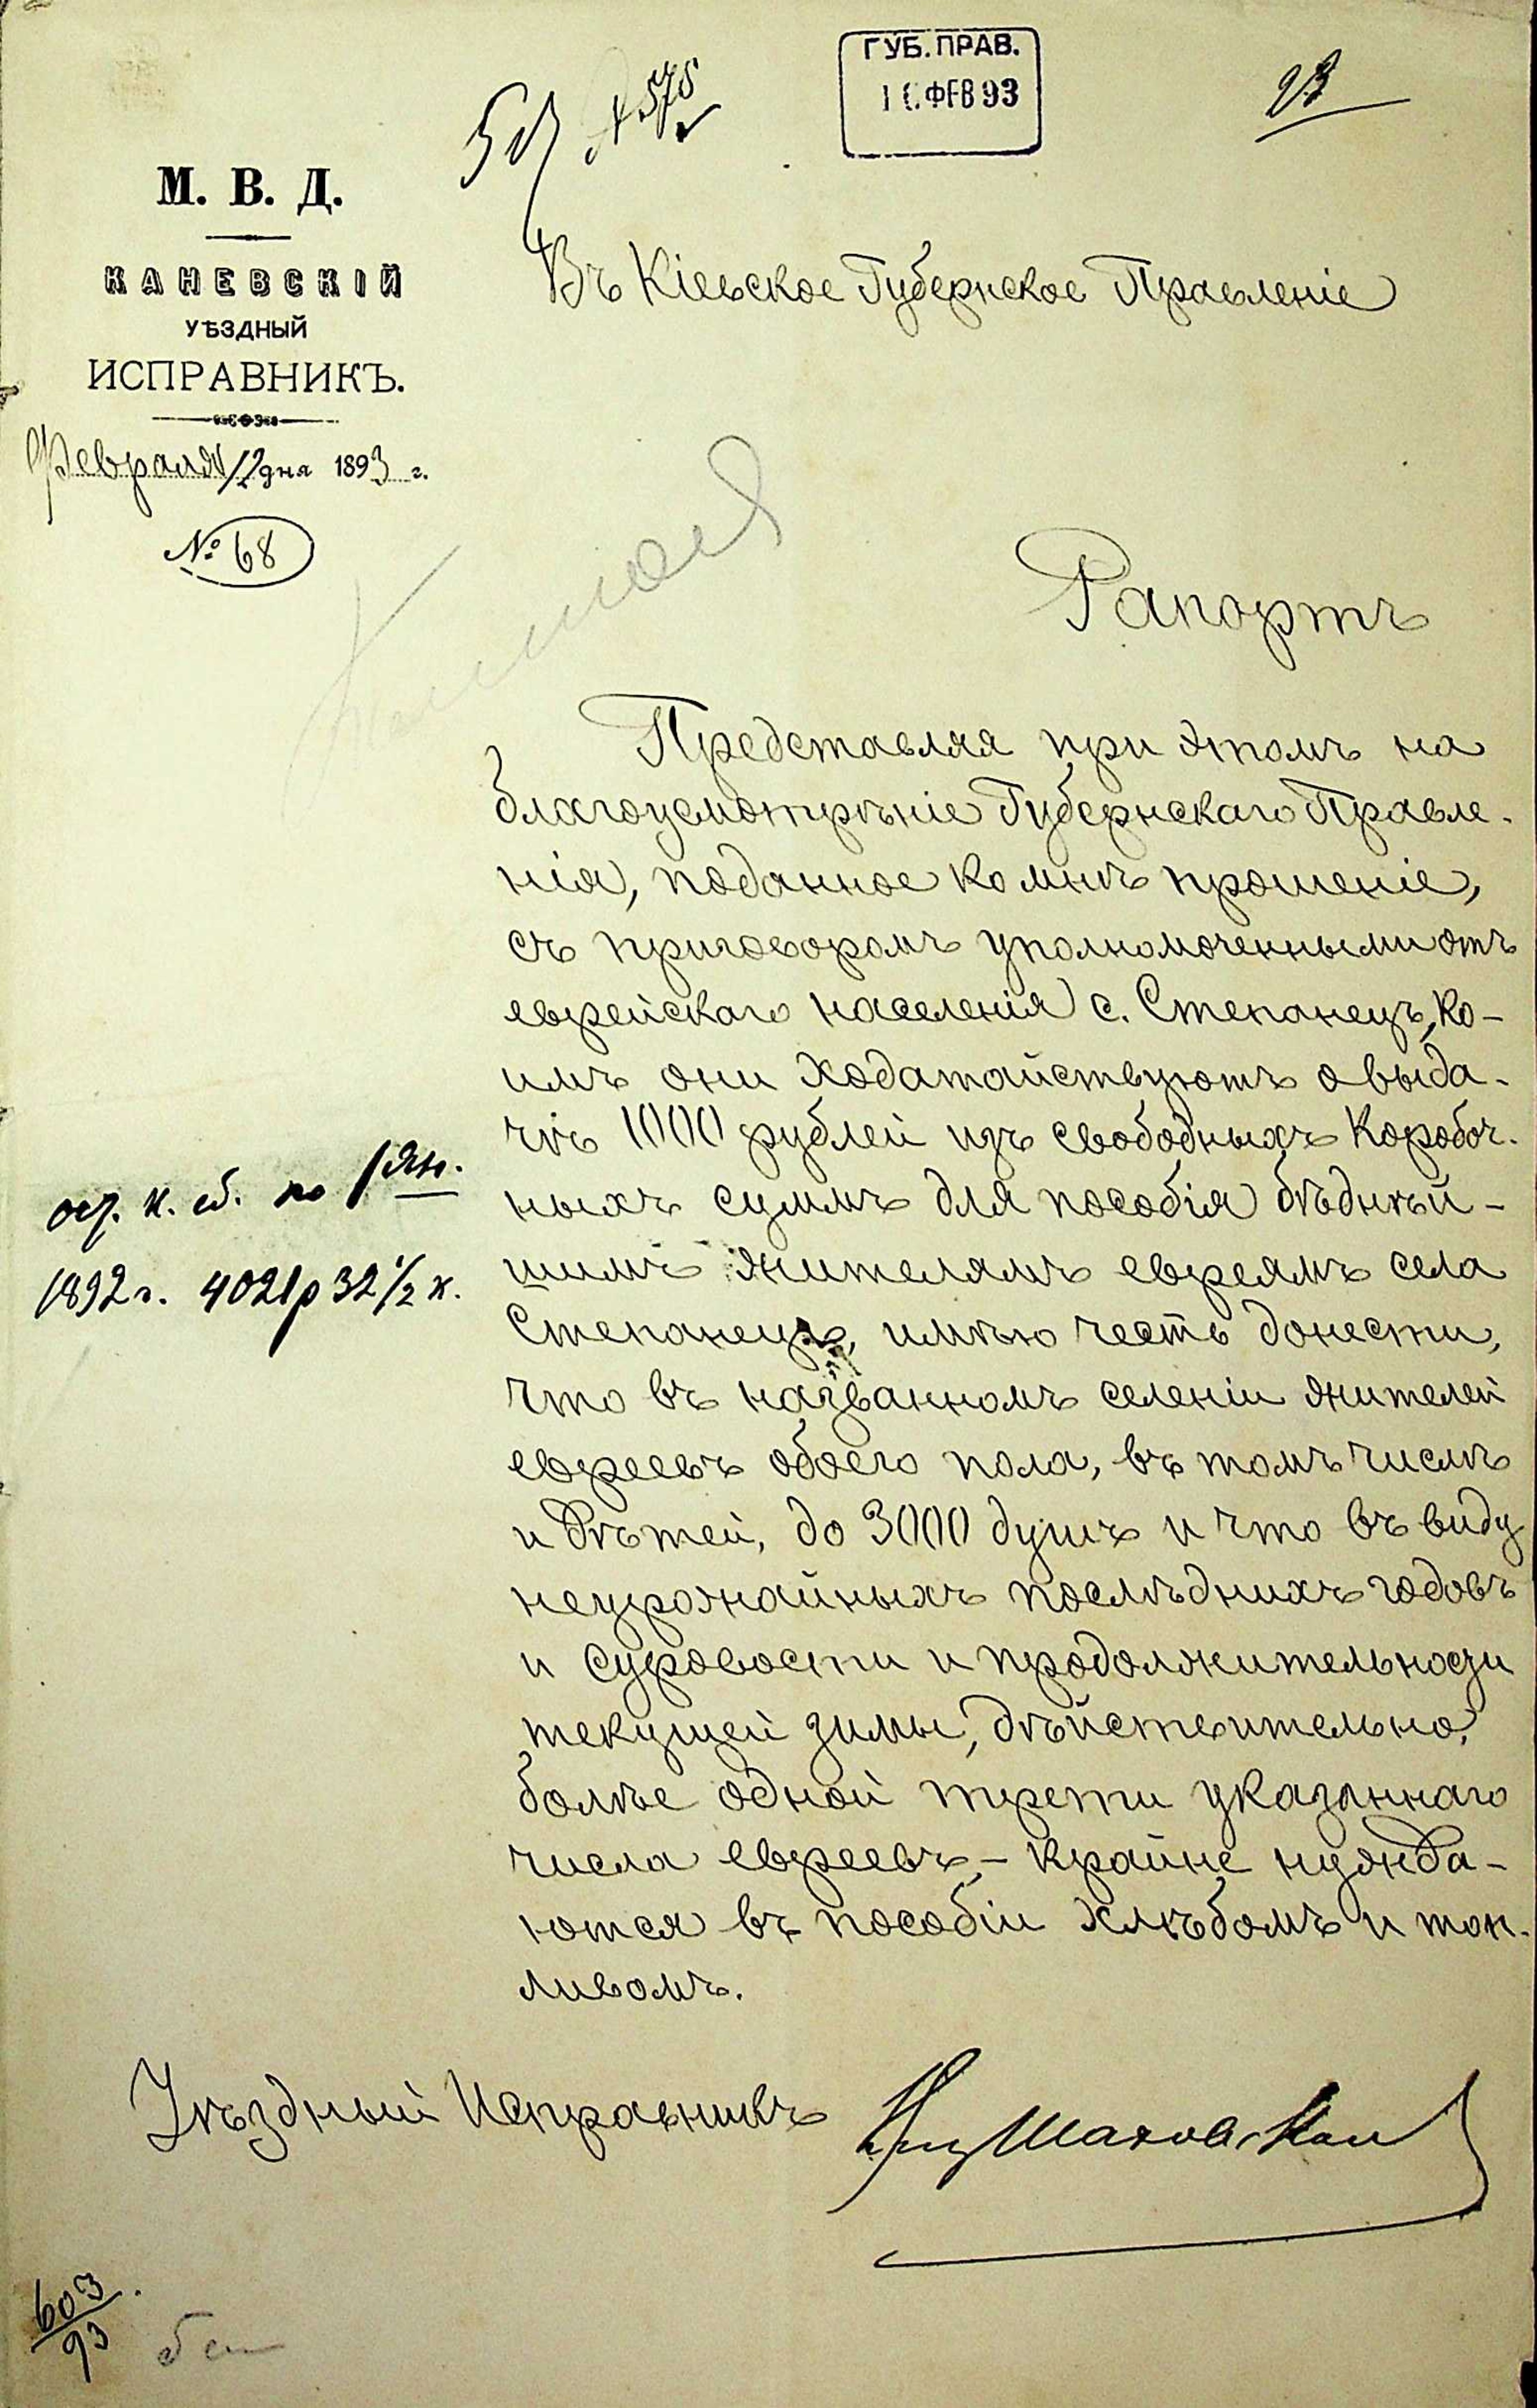 ГУБ. ПРАВ.
ФЕВ 93
№ 575
М. В. Д.
КАНЕВСКІЙ
УѢЗДНЫЙ
ИСПРАВНИКЪ.
Февраля 12 дня 1893 г.
№ 68
Въ Кіевское Губернское Правленіе
Рапортъ
Представляя при этомъ на
благоусмотрѣніе Губернскаго Правле-
нія, поданное ко мнѣ прошеніе,
съ приговоромъ уполномоченными отъ
еврейскаго населенія с. Степанецъ, ко-
имъ они ходатайствуютъ о выда-
чѣ 1000 рублей изъ свободныхъ Коробоч-
ныхъ суммъ для пособія бѣднѣй-
шимъ жителямъ евреямъ села
Степанецъ, имѣю честь донести,
что въ названномъ селеніи жителей
евреевъ обоего пола, въ томъ числѣ
и дѣтей, до 3000 душъ и что въ виду
неурожайныхъ послѣднихъ годовъ
и суровости и продолжительности
текущей зимы, дѣйствительно,
болѣе одной трети указаннаго
числа евреевъ, - крайне нужда-
ются въ пособіи хлѣбомъ и топ-
ливомъ.
к. сб. по 1 Ян.
1892 г. 4021 р 32 1/2 к.
Уѣздный Исправникъ Шаховской
603/93